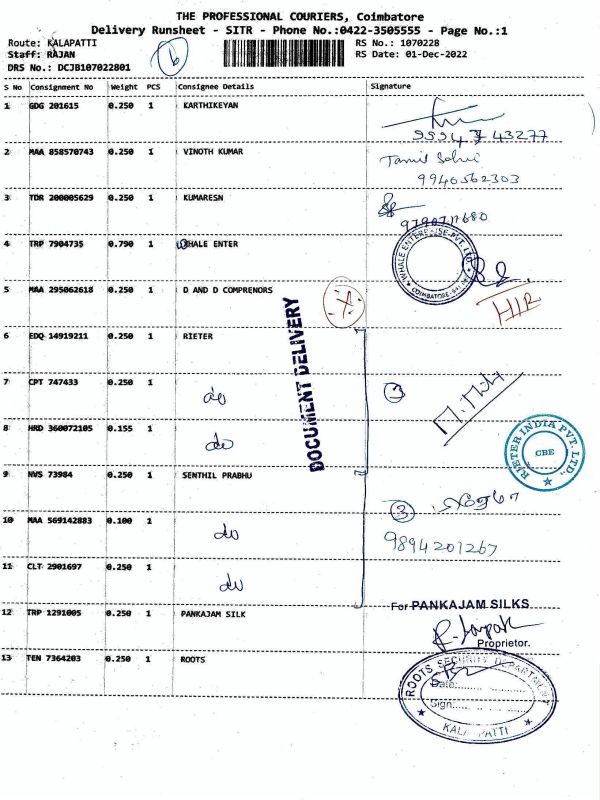 THE PROFESSIONAL COURIERS, Coimbatore
Delivery Runsheet - SITR - Phone No.:0422-3505555 - Page No.:1
Route: KALAPATTI
RS No.: 1070228
Staff: RAJAN
RS Date: 01-Dec-2022
DRS No.: DCJB107022801
6
S No Consignment No Weight PCS Consignee Details Signature
1 GDG 201615 0.250 1 KARTHIKEYAN
43277
2 MAA 858570743 0.250 1 VINOTH KUMAR
Tamil Selvi
9940562303
3 TDR 200005629 0.250 1 KUMARESN
4 TRP 7904735 0.790 1 WHALE ENTER
WHALE ENTERPRISE PVT LTD
COIMBATORE
5 MAA 295062618 0.250 1 D AND D COMPRENORS
H/R
DOCUMENT DELIVERY
6 EDQ 14919211 0.250 1 RIETER
7 CPT 747433 0.250 1 do 3
8 HRD 360072105 0.155 1 do
RIETER INDIA PVT. LTD.,
CBE
9 NVS 73984 0.250 1 SENTHIL PRABHU
3
10 MAA 569142883 0.100 1 do
9894201267
11 CLT 2901697 0.250 1 do
For PANKAJAM SILKS
12 TRP 1291005 0.250 1 PANKAJAM SILK
Proprietor.
13 TEN 7364203 0.250 1 ROOTS
ROOTS SECURITY DEPARTMENT
Date:
Sign
KALAPATTI